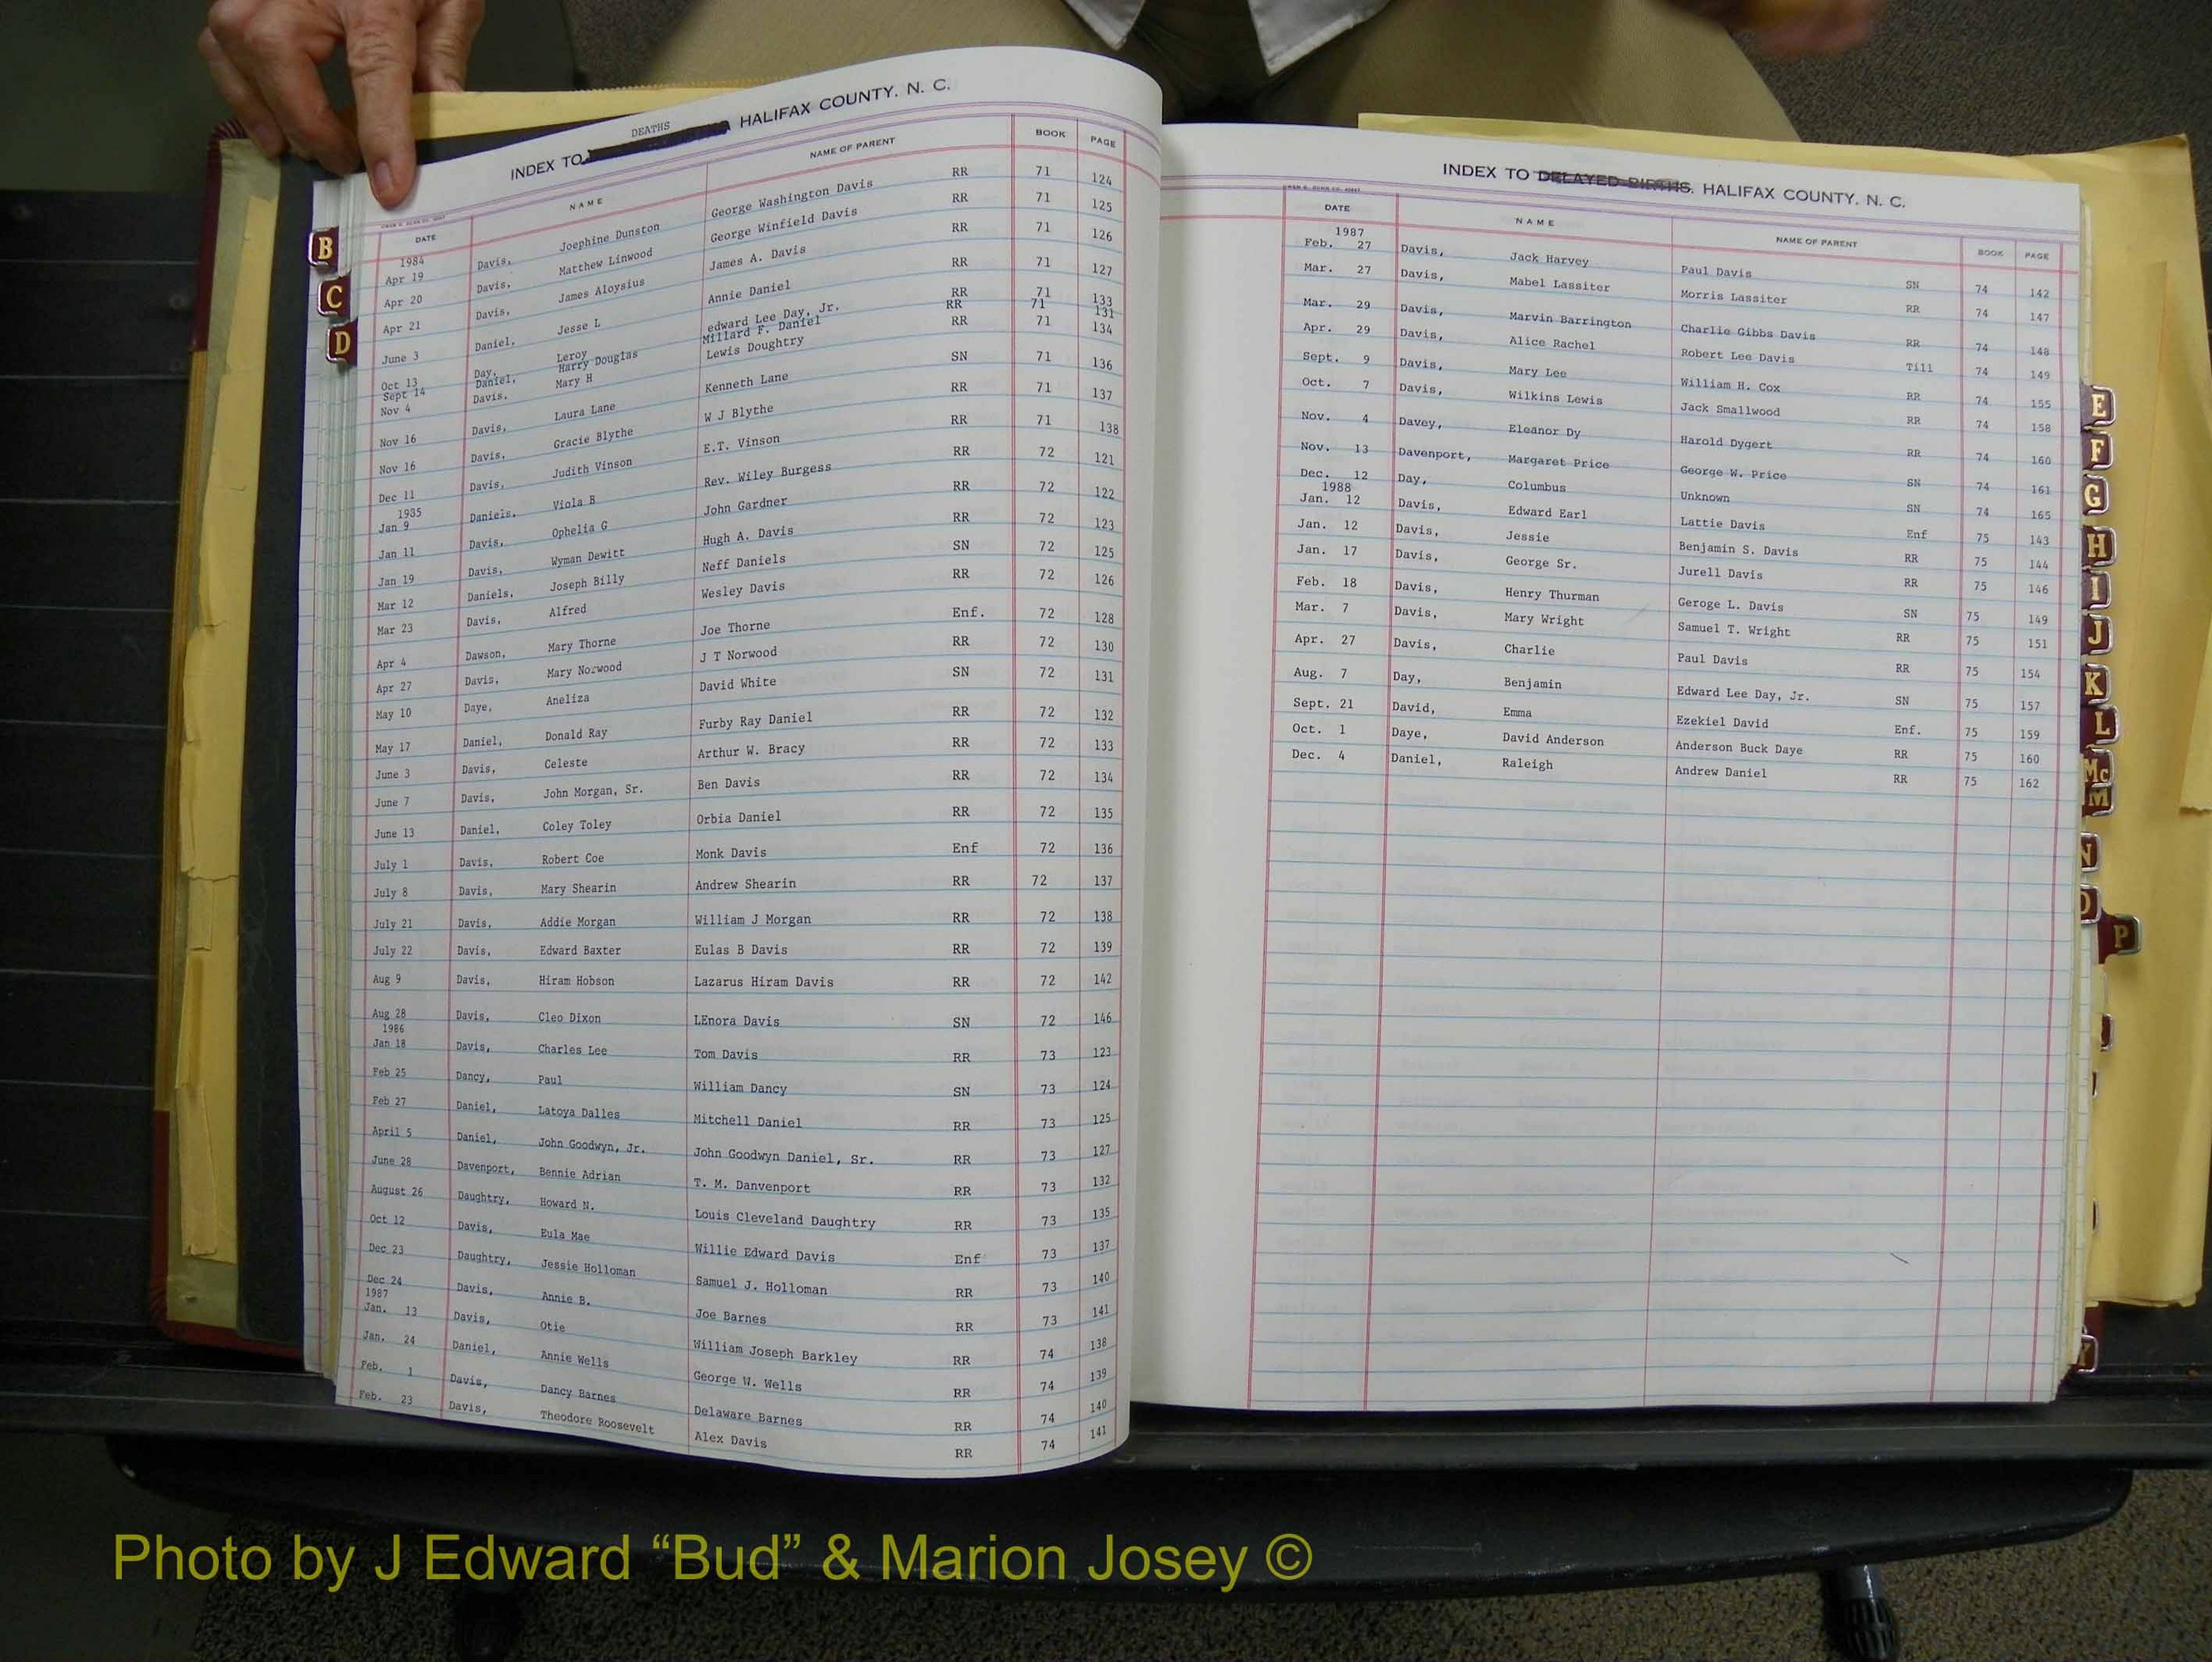 DEATHS
INDEX TO HALIFAX COUNTY, N. C.
DATE NAME NAME OF PARENT BOOK PAGE
1984
Apr 19 Davis, Joephine Dunston George Washington Davis RR 71 124
Apr 20 Davis, Matthew Linwood George Winfield Davis RR 71 125
Apr 21 Davis, James Aloysius James A. Davis RR 71 126
June 3 Daniel, Jesse L Annie Daniel RR 71 127
Oct 13 Day, Leroy edward Lee Day, Jr. RR 71 133
Sept 14 Daniel, Harry Douglas Millard F. Daniel RR 71 131
Nov 4 Davis, Mary H Lewis Doughtry RR 71 134
Nov 16 Davis, Laura Lane Kenneth Lane SN 71 136
Nov 16 Davis, Gracie Blythe W J Blythe RR 71 137
Dec 11 Davis, Judith Vinson E.T. Vinson RR 71 138
1985
Jan 9 Daniels, Viola B Rev. Wiley Burgess RR 72 121
Jan 11 Davis, Ophelia G John Gardner RR 72 122
Jan 19 Davis, Wyman Dewitt Hugh A. Davis RR 72 123
Mar 12 Daniels, Joseph Billy Neff Daniels SN 72 125
Mar 23 Davis, Alfred Wesley Davis RR 72 126
Apr 4 Dawson, Mary Thorne Joe Thorne Enf. 72 128
Apr 27 Davis, Mary Norwood J T Norwood RR 72 130
May 10 Daye, Aneliza David White SN 72 131
May 17 Daniel, Donald Ray Furby Ray Daniel RR 72 132
June 3 Davis, Celeste Arthur W. Bracy RR 72 133
June 7 Davis, John Morgan, Sr. Ben Davis RR 72 134
June 13 Daniel, Coley Toley Orbia Daniel RR 72 135
July 1 Davis, Robert Coe Monk Davis Enf 72 136
July 8 Davis, Mary Shearin Andrew Shearin RR 72 137
July 21 Davis, Addie Morgan William J Morgan RR 72 138
July 22 Davis, Edward Baxter Eulas B Davis RR 72 139
Aug 9 Davis, Hiram Hobson Lazarus Hiram Davis RR 72 142
Aug 28 Davis, Cleo Dixon LEnora Davis SN 72 146
1986
Jan 18 Davis, Charles Lee Tom Davis RR 73 123
Feb 25 Dancy, Paul William Dancy SN 73 124
Feb 27 Daniel, Latoya Dalles Mitchell Daniel RR 73 125
April 5 Daniel, John Goodwyn, Jr. John Goodwyn Daniel, Sr. RR 73 127
June 28 Davenport, Bennie Adrian T. M. Danvenport RR 73 132
August 26 Daughtry, Howard N. Louis Cleveland Daughtry RR 73 135
Oct 12 Davis, Eula Mae Willie Edward Davis Enf 73 137
Dec 23 Daughtry, Jessie Holloman Samuel J. Holloman RR 73 140
Dec 24 Davis, Annie B. Joe Barnes RR 73 141
1987
Jan. 13 Davis, Otie William Joseph Barkley RR 74 138
Jan. 24 Daniel, Annie Wells George W. Wells RR 74 139
Feb. 1 Davis, Dancy Barnes Delaware Barnes RR 74 140
Feb. 23 Davis, Theodore Roosevelt Alex Davis RR 74 141
B
C
D
INDEX TO DELAYED BIRTHS. HALIFAX COUNTY. N. C.
DATE NAME NAME OF PARENT BOOK PAGE
1987
Feb. 27 Davis, Jack Harvey Paul Davis SN 74 142
Mar. 27 Davis, Mabel Lassiter Morris Lassiter RR 74 147
Mar. 29 Davis, Marvin Barrington Charlie Gibbs Davis RR 74 148
Apr. 29 Davis, Alice Rachel Robert Lee Davis Till 74 149
Sept. 9 Davis, Mary Lee William H. Cox RR 74 155
Oct. 7 Davis, Wilkins Lewis Jack Smallwood RR 74 158
Nov. 4 Davey, Eleanor Dy Harold Dygert RR 74 160
Nov. 13 Davenport, Margaret Price George W. Price SN 74 161
Dec. 12 Day, Columbus Unknown SN 74 165
1988
Jan. 12 Davis, Edward Earl Lattie Davis Enf 75 143
Jan. 12 Davis, Jessie Benjamin S. Davis RR 75 144
Jan. 17 Davis, George Sr. Jurell Davis RR 75 146
Feb. 18 Davis, Henry Thurman Geroge L. Davis SN 75 149
Mar. 7 Davis, Mary Wright Samuel T. Wright RR 75 151
Apr. 27 Davis, Charlie Paul Davis RR 75 154
Aug. 7 Day, Benjamin Edward Lee Day, Jr. SN 75 157
Sept. 21 David, Emma Ezekiel David Enf. 75 159
Oct. 1 Daye, David Anderson Anderson Buck Daye RR 75 160
Dec. 4 Daniel, Raleigh Andrew Daniel RR 75 162
E
F
G
H
I
J
K
L
Mc
M
N
O
P
Photo by J Edward “Bud” & Marion Josey ©